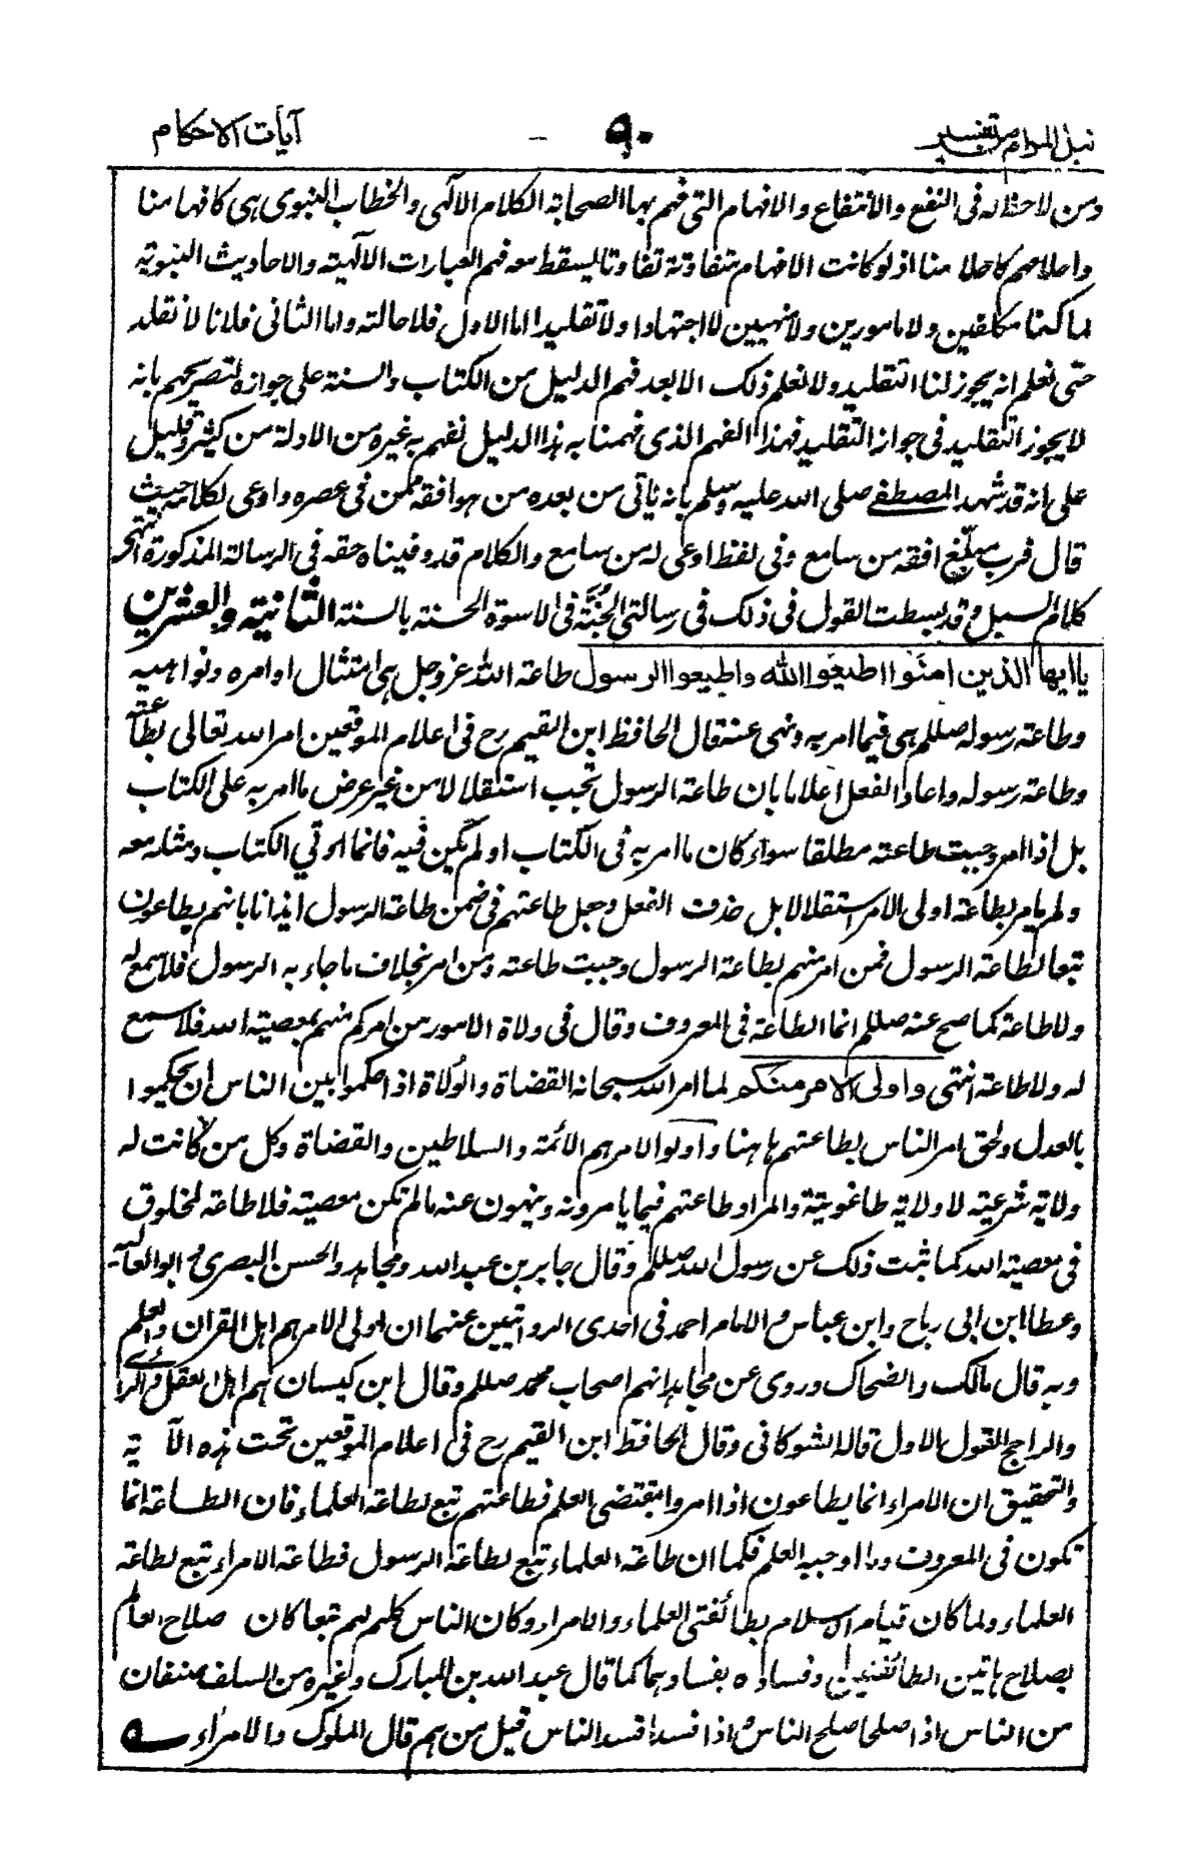 نيل المرام من تفسير ٩٠ آيات الاحكام
ومن لاحظ له فى النفع والانتفاع والافهام التى فهم بها الصحابة الكلام الالهى والخطاب النبوى هى كافهامنا
واحلامهم كاحلامنا اذ لو كانت الافهام متفاوتة تفاوتا يسقط معه فهم العبارات الالهية والاحاديث النبوية
لما كنا مكلفين ولا مامورين ولا منهيين لا اجتهادا ولا تقليدا اما الاول فلاحالته واما الثانى فلانا لا نقلد
حتى نعلم انه يجوز لنا التقليد ولا نعلم ذلك الا بعد فهم الدليل من الكتاب والسنة على جوازه لتصريحهم بانه
لا يجوز التقليد فى جواز التقليد فهذا الفهم الذى فهمنا به هذا الدليل نفهم به غيره من الادلة من كثير وقليل
على انه قد شهد المصطفى صلى الله عليه وسلم بانه ياتى من بعده من هو افقه ممن فى عصره واوعى لكلامه حيث
قال فرب مبلغ افقه من سامع وفى لفظ اوعى له من سامع والكلام قد وفيناه حقه فى الرسالة المذكورة انتهى
كلام السيل وقد بسطت القول فى ذلك فى رسالتى الجنة فى الاسوة الحسنة بالسنة الثانية والعشرين
يا ايها الذين امنوا اطيعوا الله واطيعوا الرسول طاعة الله عز وجل هى امتثال اوامره ونواهيه
وطاعة رسوله صللم هى فيما امر به ونهى عنه قال الحافظ ابن القيم رح فى اعلام الموقعين امر الله تعالى بطاعته
وطاعة رسوله واعاد الفعل اعلاما بان طاعة الرسول تجب استقلالا من غير عرض ما امر به على الكتاب
بل اذا امر وجبت طاعته مطلقا سواء كان ما امر به فى الكتاب او لم يكن فيه فانما اوتي الكتاب ومثله معه
ولم يامر بطاعة اولى الامر استقلالا بل حذف الفعل وجعل طاعتهم فى ضمن طاعة الرسول ايذانا بانهم يطاعون
تبعا لطاعة الرسول فمن امر منهم بطاعة الرسول وجبت طاعته ومن امر بخلاف ما جاء به الرسول فلا سمع له
ولا طاعة كما صح عنه صللم انما الطاعة فى المعروف وقال فى ولاة الامور من امركم منهم بمعصية الله فلا سمع
له ولا طاعة انتهى واولى الامر منكم لما امر الله سبحانه القضاة والولاة اذا حكموا بين الناس ان يحكموا
بالعدل ولحق امر الناس بطاعتهم هاهنا واولوا الامر هم الائمة والسلاطين والقضاة وكل من كانت له
ولاية شرعية لا ولاية طاغوتية والمراد طاعتهم فيما يامرونه وينهون عنه مالم تكن معصية فلا طاعة لمخلوق
فى معصية الله كما ثبت ذلك عن رسول الله صللم وقال جابر بن عبد الله ومجاهد والحسن البصرى وابو العالية
وعطا ابن ابى رباح وابن عباس والامام احمد فى احدى الروايتين عنهما ان اولى الامر هم اهل القران والعلم
وبه قال مالك والضحاك وروى عن مجاهد انهم اصحاب محمد صللم وقال ابن كيسان هم اهل العقل والراى
والراجح القول الاول قاله الشوكانى وقال الحافظ ابن القيم رح فى اعلام الموقعين تحت هذه الآية
والتحقيق ان الامراء انما يطاعون اذا امروا بمقتضى العلم فطاعتهم تبع لطاعة العلماء فان الطاعة انما
تكون فى المعروف وما اوجبه العلم فكما ان طاعة العلماء تبع لطاعة الرسول فطاعة الامراء تبع لطاعة
العلماء ولما كان قيام الاسلام بطائفتى العلماء والامراء وكان الناس كلهم لهم تبعا كان صلاح العالم
بصلاح هاتين الطائفتين وفساده بفسادهما كما قال عبد الله بن المبارك وغيره من السلف صنفان
من الناس اذا صلحا صلح الناس واذا فسدا فسد الناس قيل من هم قال الملوك والامراء